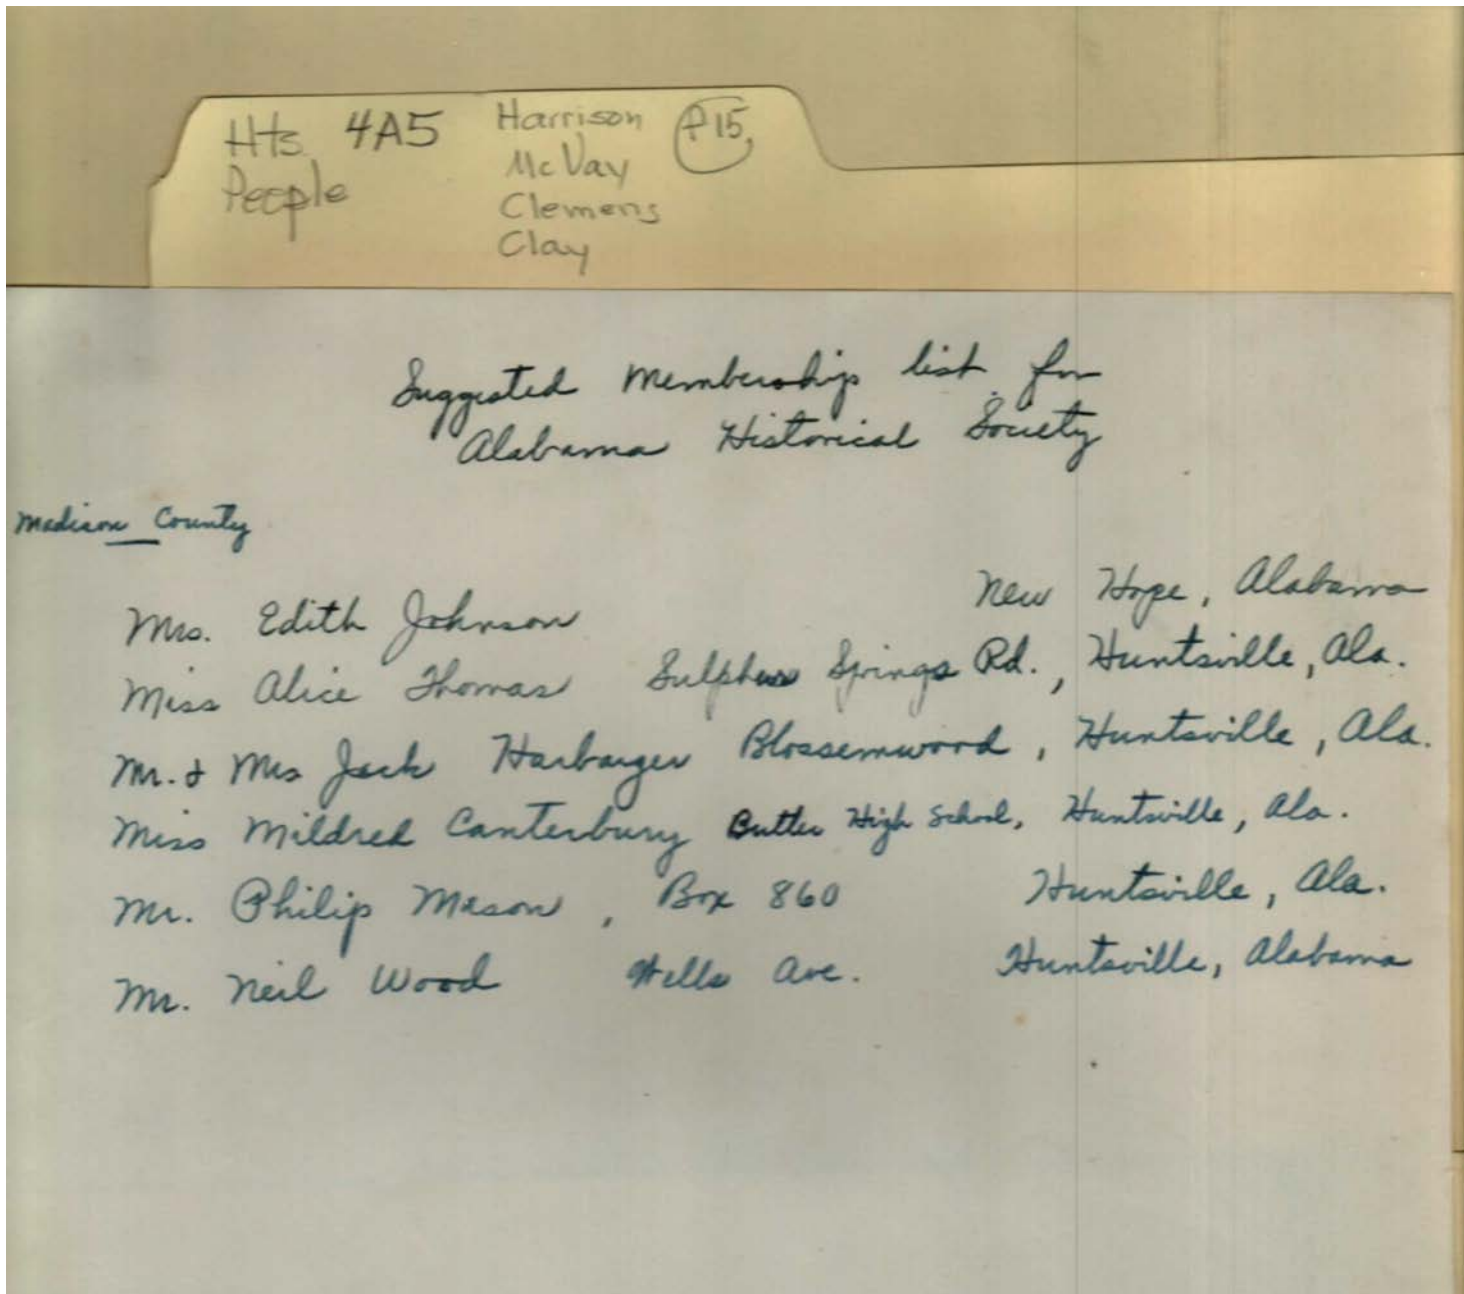 Hts 4A5 Harrison P15
People McVay
Clemens
Clay
Suggested Membership list for
Alabama Historical Society
Madison County
Mrs. Edith Johnson New Hope, Alabama
Miss Alice Thomas Sulphur Springs Rd., Huntsville, Ala.
Mr. & Mrs Jack Harbarger Blossemwood, Huntsville, Ala.
Miss Mildred Canterbury Butler High School, Huntsville, Ala.
Mr. Philip Mason, Box 860 Huntsville, Ala.
Mr. Neil Wood Wells Ave. Huntsville, Alabama